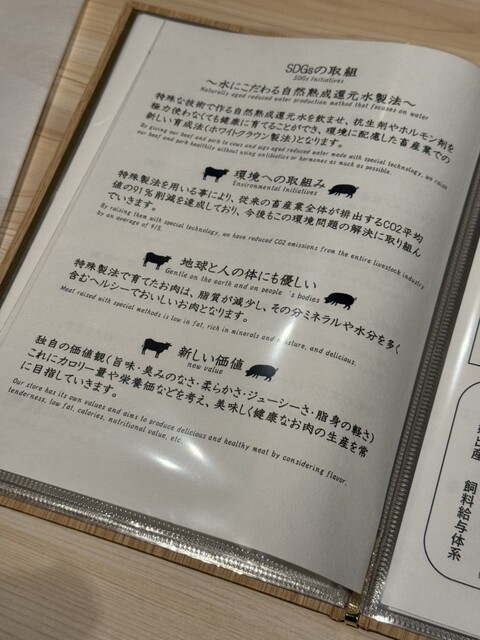 SDGsの取組
SDGs Initiatives
～水にこだわる自然熟成還元水製法～
Naturally aged reduced water production method that focuses on water
特殊な技術で作る自然熟成還元水を飲ませ、抗生剤やホルモン剤を
極力使わなくても健康に育てることができ、環境に配慮した畜産業での
新しい育成法(ホワイトクラウン製法)となります。
By giving our beef and pork to cows and pigs aged reduced water made with special technology, we raise
our beef and pork healthily without using antibiotics or hormones as much as possible.
環境への取組み
Environmental Initiatives
特殊製法を用いる事により、従来の畜産業全体が排出するCO2平均
値の91％削減を達成しており、今後もこの環境問題の解決に取り組ん
でいきます。
By raising them with special technology, we have reduced CO2 emissions from the entire livestock industry
by an average of 91%.
地球と人の体にも優しい
Gentle on the earth and on people's bodies
特殊製法で育てたお肉は、脂質が減少し、その分ミネラルや水分を多く
含むヘルシーでおいしいお肉となります。
Meat raised with special methods is low in fat, rich in minerals and moisture, and delicious.
新しい価値
new value
独自の価値観(旨味・臭みのなさ・柔らかさ・ジューシーさ・脂身の軽さ)
これにカロリー量や栄養価などを考え、美味しく健康なお肉の生産を常
に目指していきます。
Our store has its own values and aims to produce delicious and healthy meat by considering flavor,
tenderness, low fat, calories, nutritional value, etc.
出産
飼料給与体系